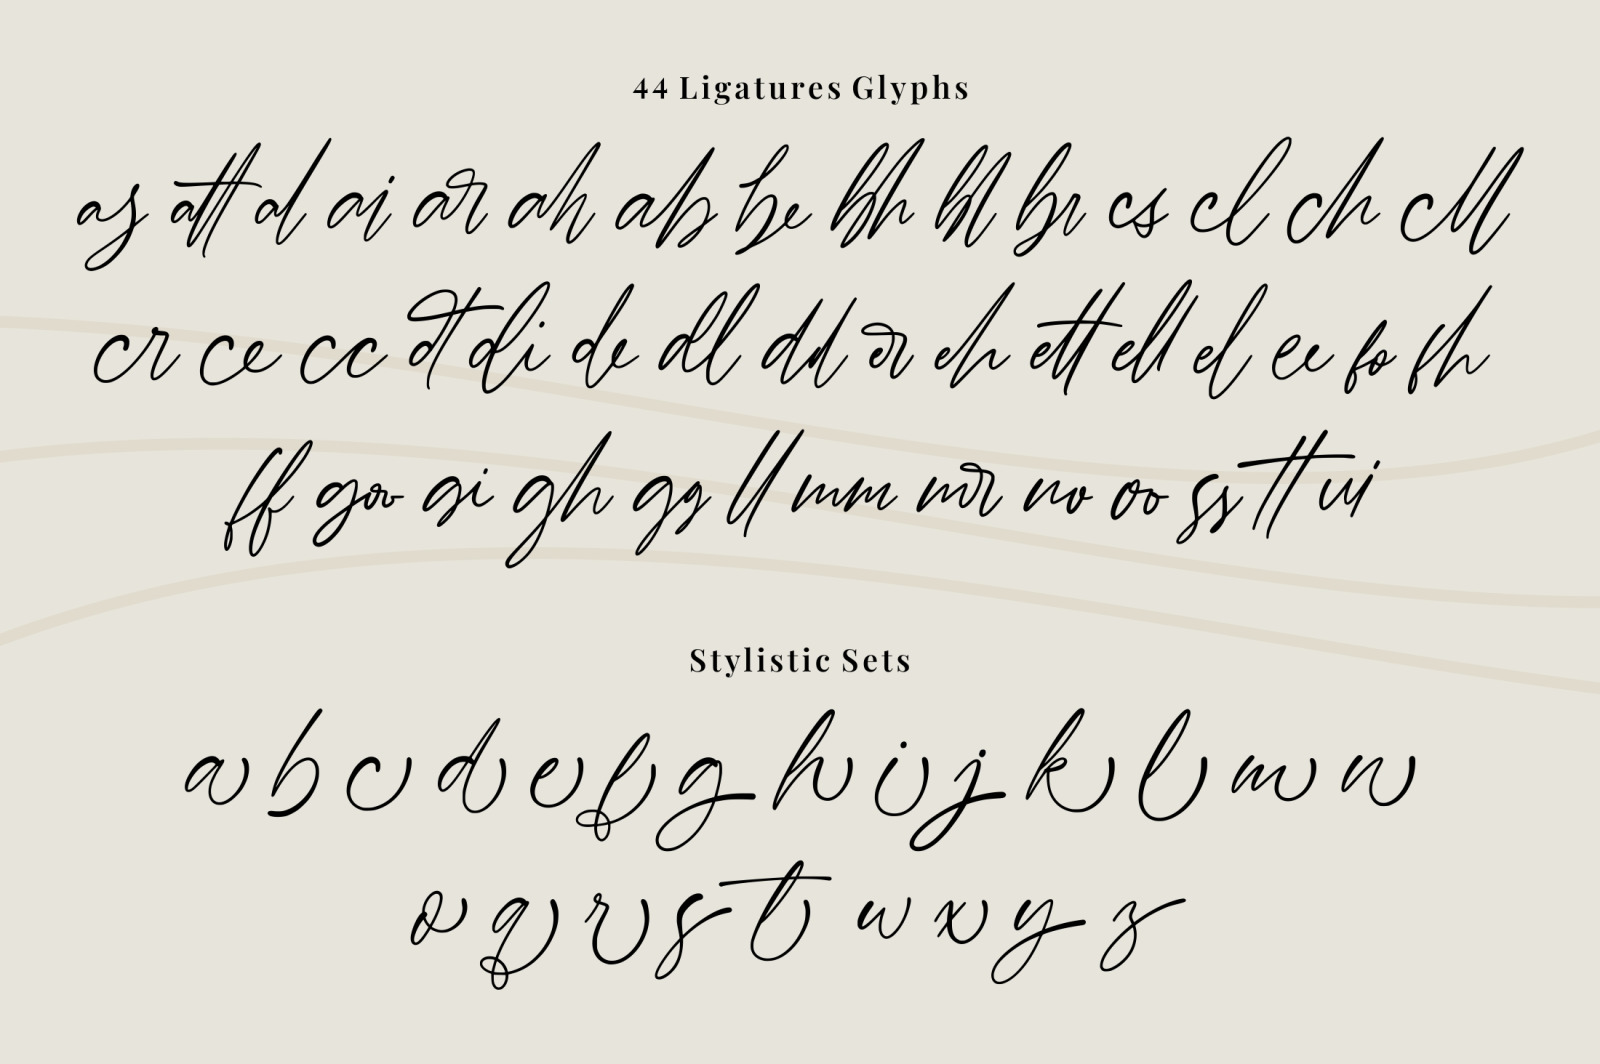 44 Ligatures Glyphs
as att al ai ar ah ab be bh bl br cs cl ch cll
cr ce cc dt di de dl dd er eh ett ell el ee fo fh
ff go gi gh gg ll mm mr no oo ss tt ui
Stylistic Sets
a b c d e f g h i j k l m n
o q r s t w x y z